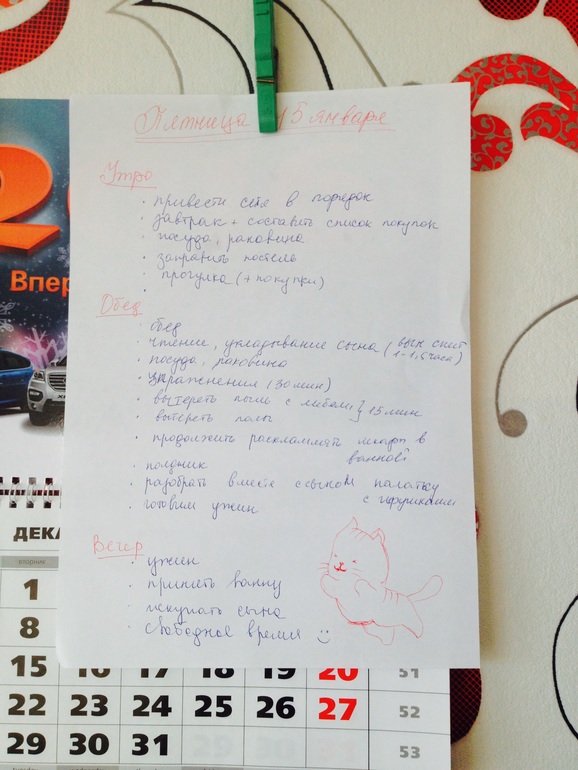 Пятница 15 января
Утро
· привести себя в порядок
· завтрак + составить список покупок
· посуда, раковина
· заправить постель
· прогулка (+ покупки)
·
Обед
· обед
· чтение, укладывание сына (
1-1,5 часа)
· посуда, раковина
· упражнения (30 мин)
· вытереть пыль с } 15 мин
· вытереть полы
· продолжить в
ванной
· полдник
· разобрать вместе с сыном палатку
с игрушками
· готовим ужин
Вечер
· ужин
· принять ванну
· искупать сына
· свободное время
2
Впер
ДЕКА
вторник
1
8
15 16 17 18 19 20 51
22 23 24 25 26 27 52
29 30 31 29 30 31 53